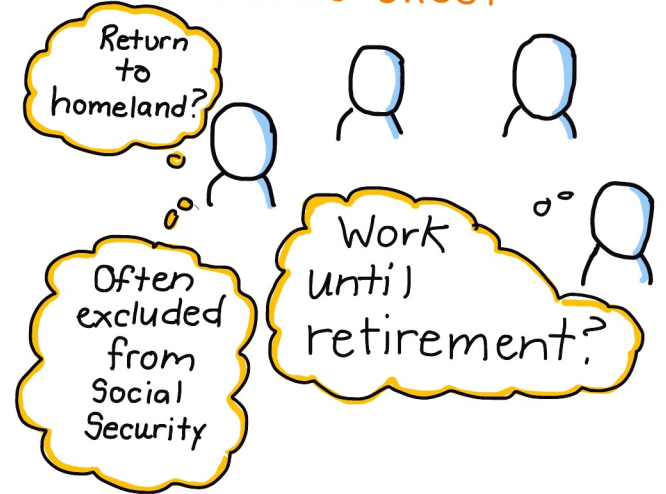 Return
to
homeland?
Often
excluded
from
Social
Security
Work
until
retirement?